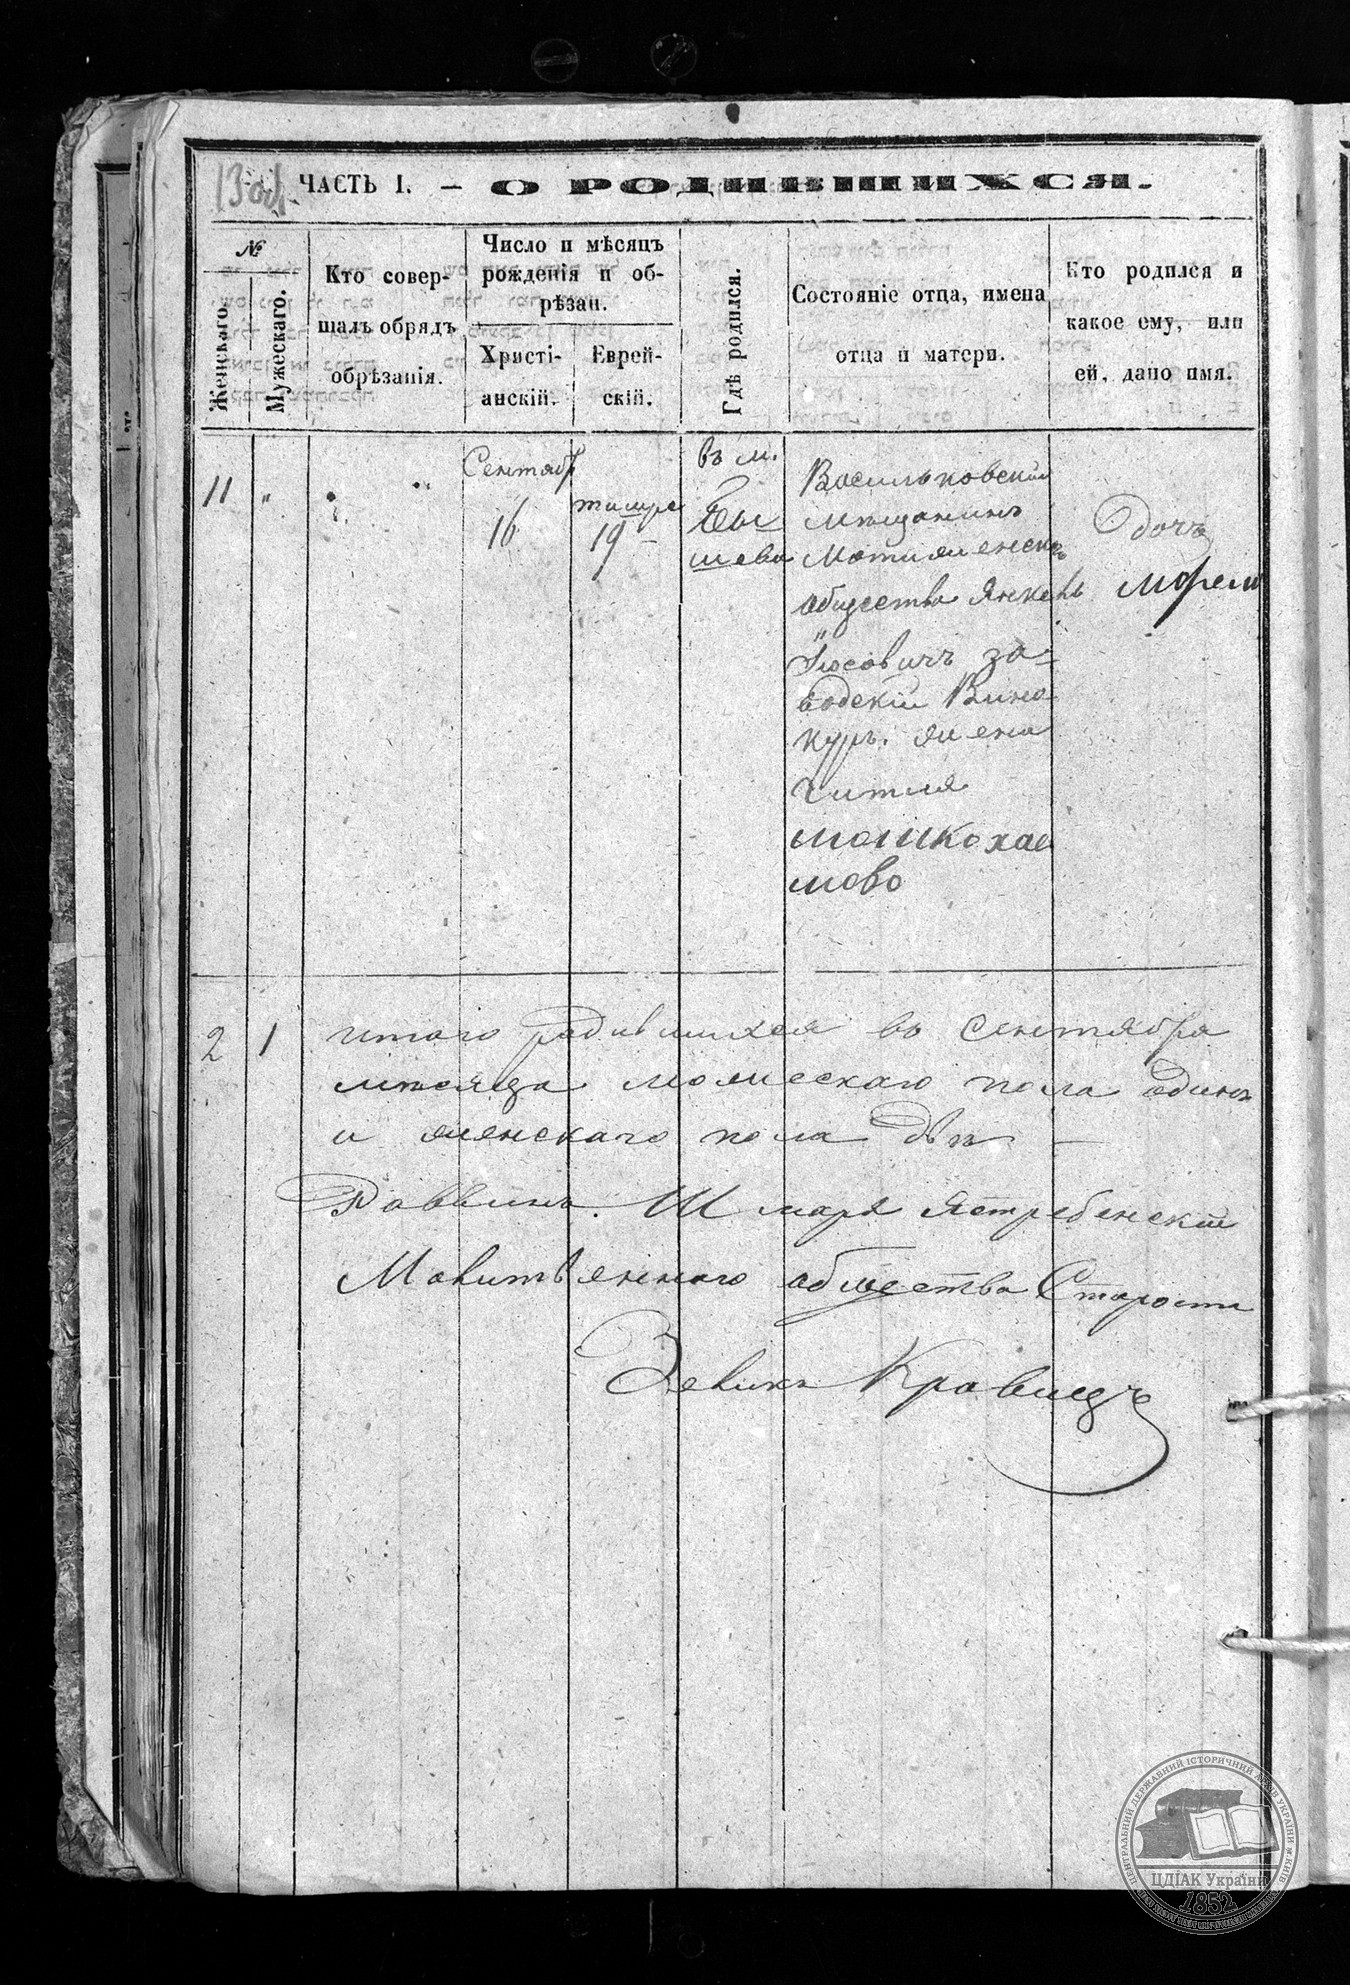 13 об.
ЧАСТЬ I. — О РОДИВШИХСЯ.
№
Женскаго.
Мужескаго.
Кто совер-
шалъ обрядъ
обрѣзанія.
Число и мѣсяцъ
рожденія и об-
рѣзан.
Христі-
анскій.
Еврей-
скій.
Гдѣ родился.
Состояніе отца, имена
отца и матери.
Кто родился и
какое ему, или
ей, дано имя.
11
Сентябр
16
тишре
19
въ м.
Бы
шева
Васильковский
мещанинъ
общества Янкель
Iосовичъ за-
водскій Вино
куръ. жена
гитля
мошкохаи
мово
Дочъ
2 1 итого родившихся въ Сентябра
месяцаможескаго пола одинъ
и женскаго пола две
Раввинъ. Шмаря Ястребенский
Молитвенного общества Староста
Зевикъ Кравецъ
ЦЕНТРАЛЬНИЙ ДЕРЖАВНИЙ ІСТОРИЧНИЙ АРХІВ УКРАЇНИ М. КИЇВ
ЦДІАК України
1852